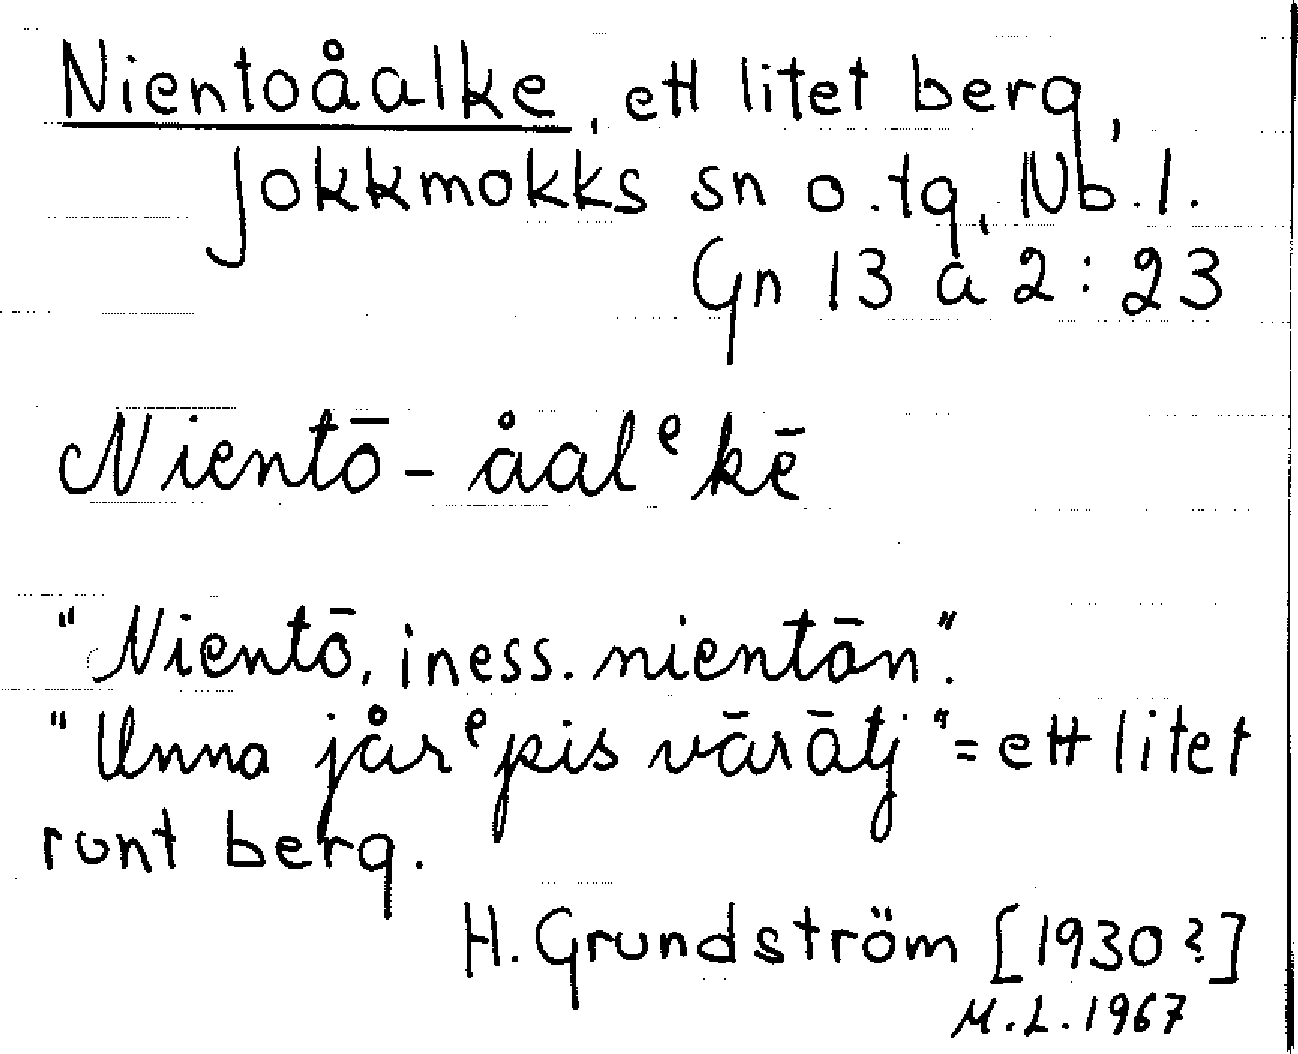 Nientoåalke, ett litet berg,
Jokkmokks sn o. tg, Nb. l.
Gn 13 a 2:23
Nientō-åalᵉkē
"Nientō, iness. nientōn".
"Unna jårᵉpis vārātj" = ett litet
runt berg.
H. Grundström [1930?]
M.L. 1967